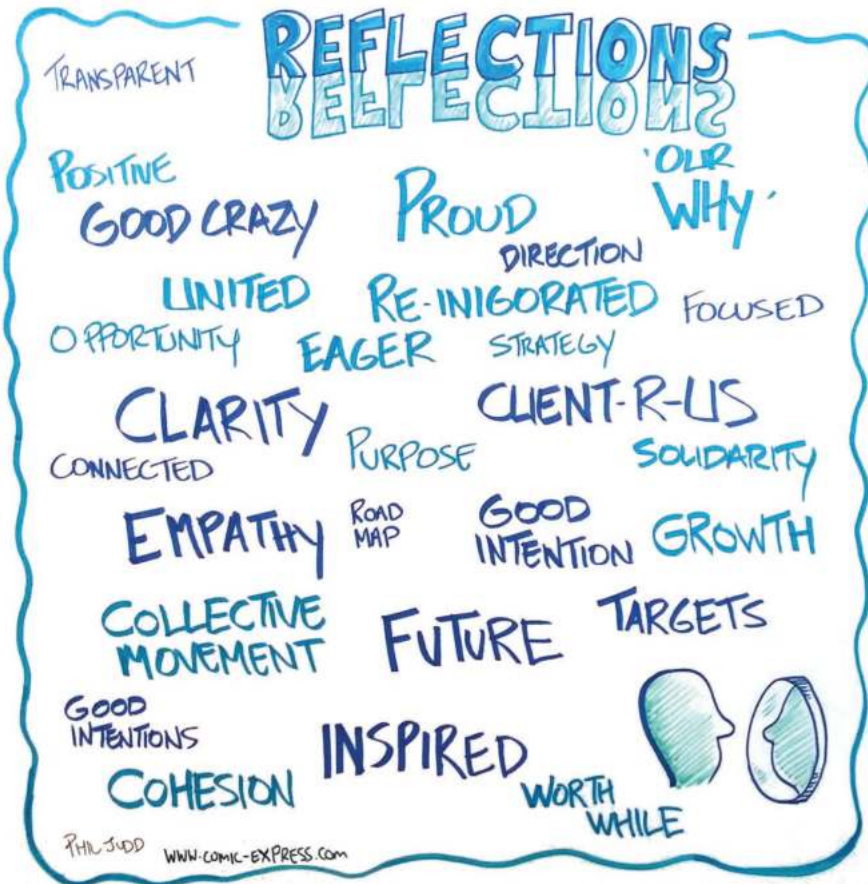 REFLECTIONS
REFLECTIONS
TRANSPARENT
POSITIVE
GOOD CRAZY
PROUD
'OUR
WHY'
DIRECTION
UNITED
RE-INIGORATED
FOCUSED
OPPORTUNITY
EAGER
STRATEGY
CLARITY
CLIENT-R-US
CONNECTED
PURPOSE
SOLIDARITY
EMPATHY
ROAD
MAP
GOOD
INTENTION
GROWTH
COLLECTIVE
MOVEMENT
FUTURE
TARGETS
GOOD
INTENTIONS
INSPIRED
COHESION
WORTH
WHILE
PHIL JUDD
WWW.COMIC-EXPRESS.com